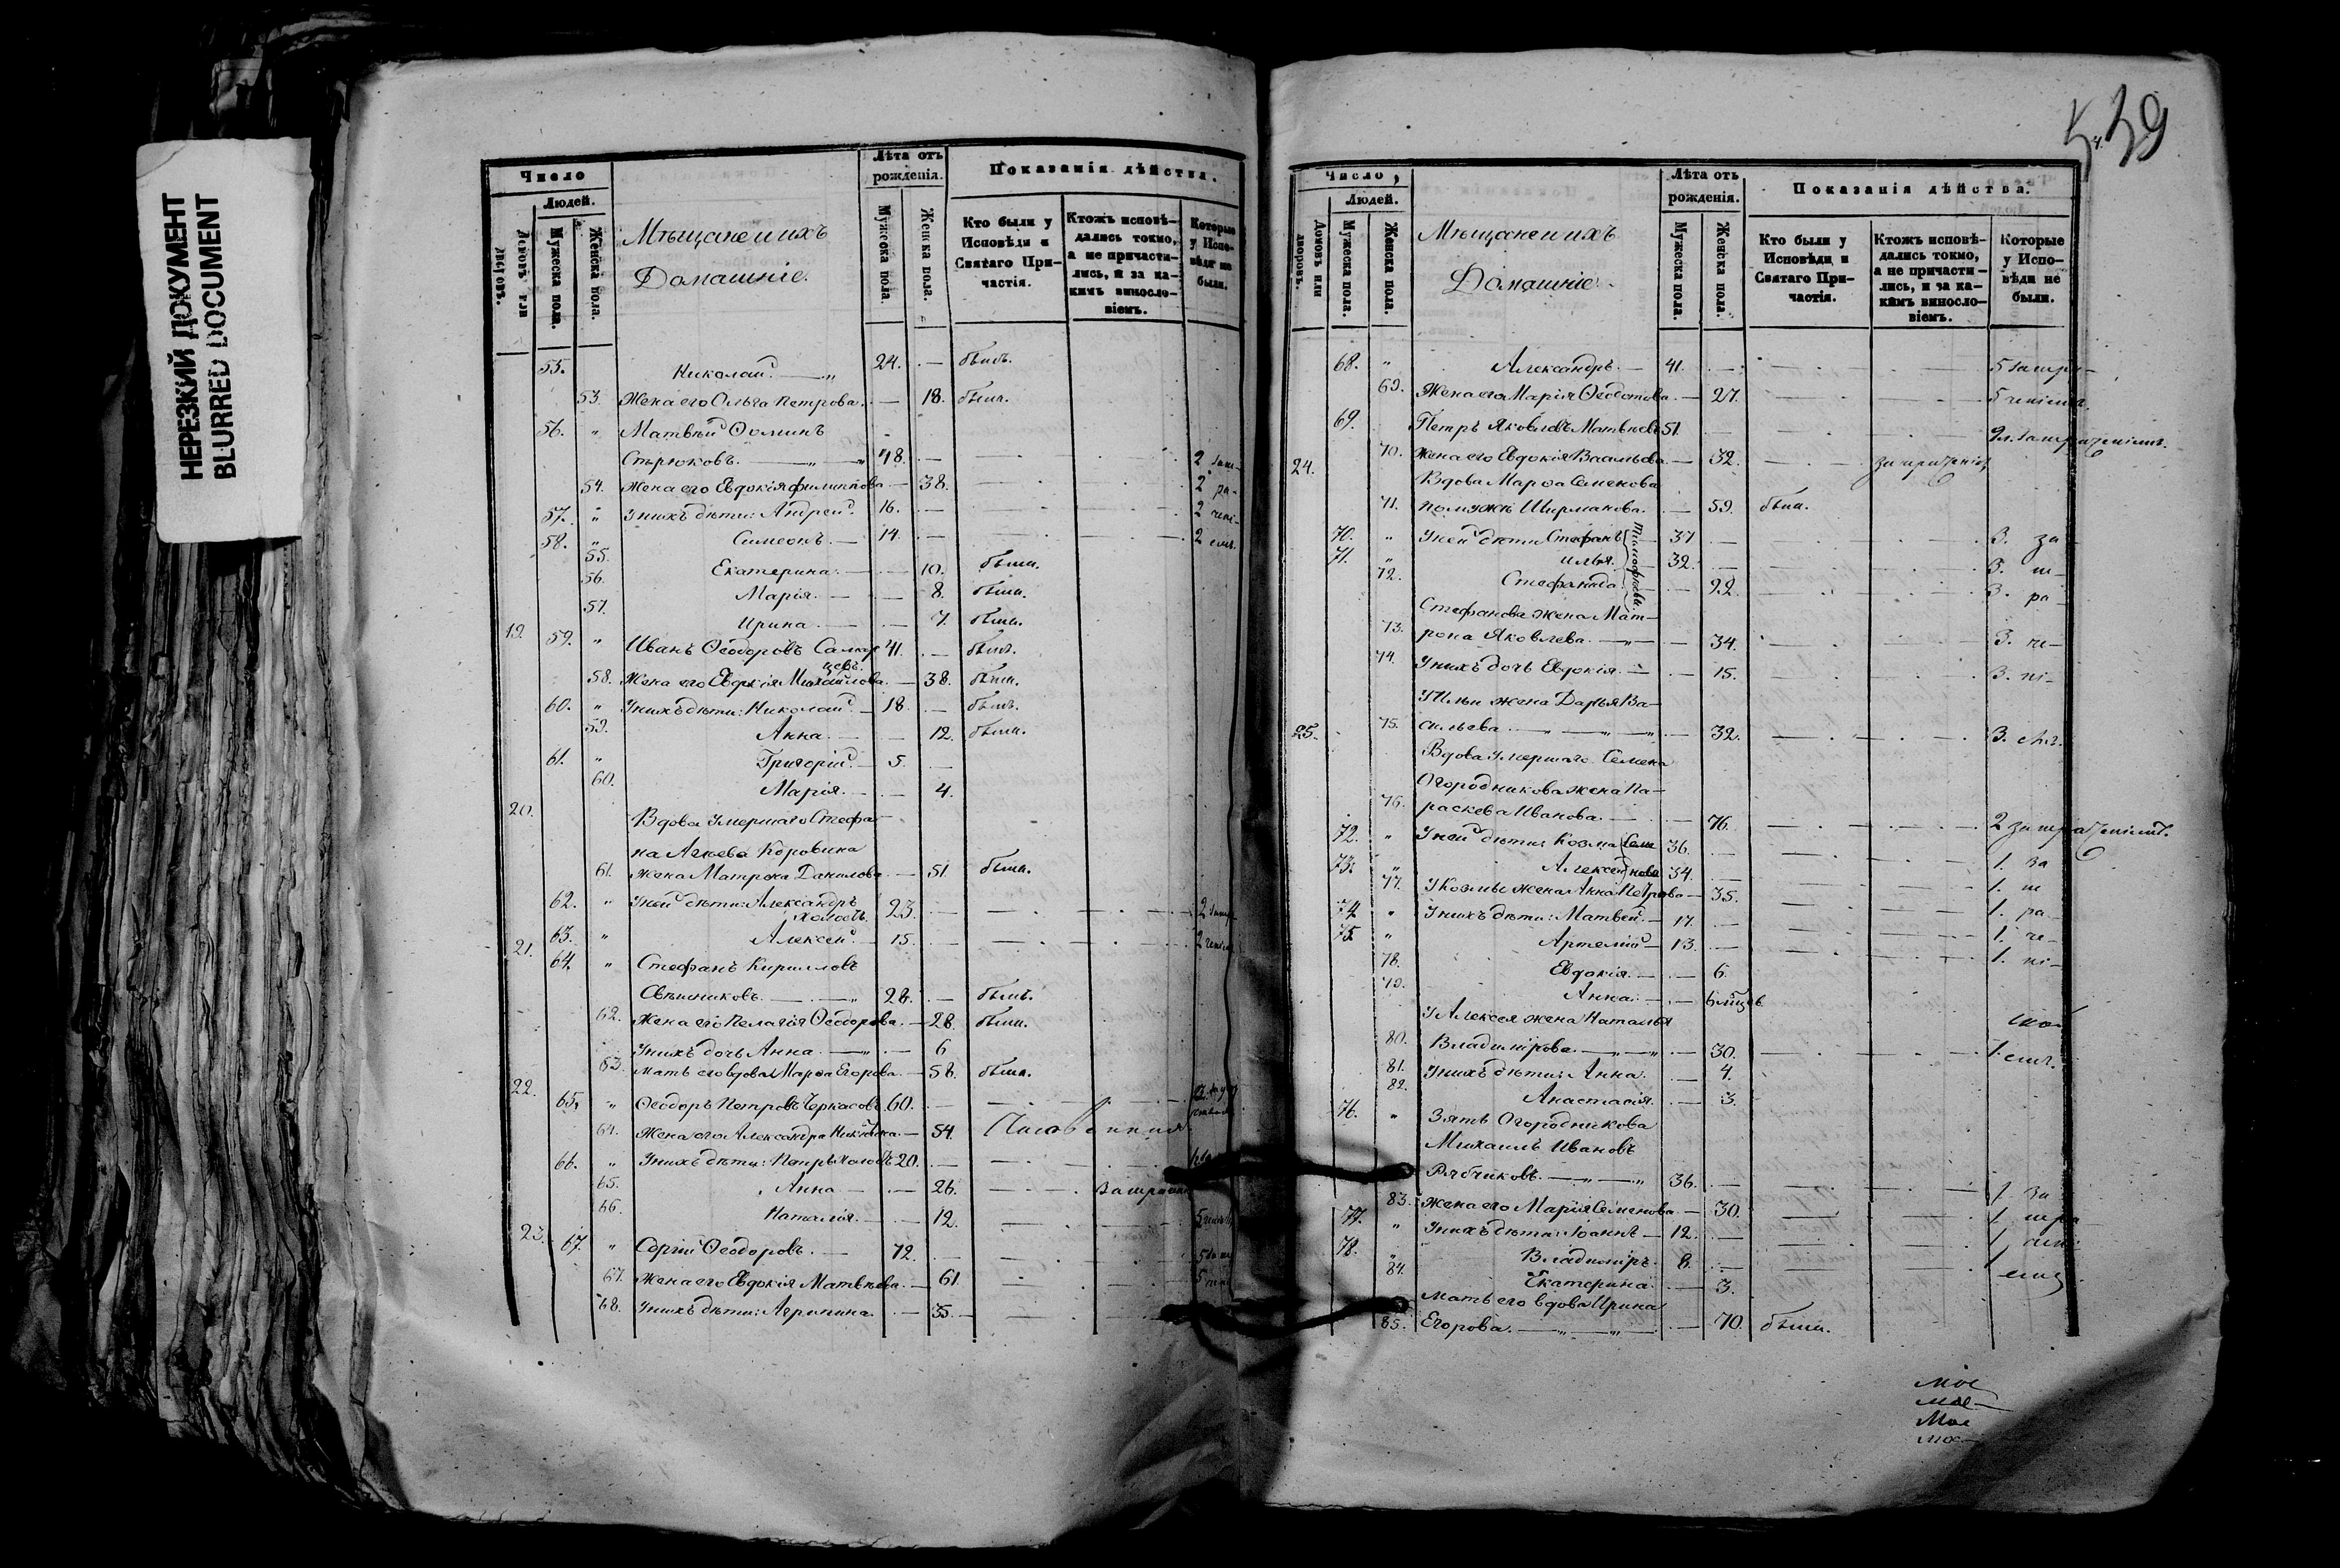 НЕРЕЗКИЙ ДОКУМЕНТ
BLURRED DOCUMENT
Число
Людей.
Домовъ или дворовъ.
Мужеска пола.
Женска пола.
Мѣщане и ихъ
Домашніе.
Лѣта отъ рожденія.
Мужеска пола.
Женска пола.
Показанія дѣйства.
Кто были у Исповѣди и Святаго Причастія.
Ктожъ исповѣдались токмо, а не причастились, и за какимъ винословіемъ.
Которые у Исповѣди не были.
55. Николай 24. — былъ.
53. Жена его Ольга Петрова. — 18. была.
56. „ Матвѣй Ѳоминъ
48. — 2
54. Жена его Евдокія Филиппова — 38. 2 ра-
57. „ У нихъ дѣти: Андрей. 16. — 2 чені-
58. „ Симеонъ. — 14. — 2 емъ.
55. Екатерина. — 10. была.
56. Марія. — 8. была.
57. Ирина. — 7. была.
19. 59. „ Иванъ Ѳеодоровъ 41. — былъ.
58. Жена его Евдокія Михайлова. — 38. была.
60. „ У нихъ дѣти: Николай. — 18. — былъ.
59. Анна. — 12. была.
61. „ Григорій. — 5. —
60. Марія. — 4.
20. Вдова умершаго Стефа-
на Агѣева Коровина
61. жена Матрона Данилова — 51. была.
62. „ У ней дѣти: Александръ
холостъ. 23. — 2
63. „ Алексѣй. 15. — 2
21. 64. „ Стефанъ Кирилловъ
Свѣшниковъ. — „ 28. — былъ.
62. Жена его Пелагія Ѳеодорова. — 28. была.
У нихъ дочь Анна. — „ — 6
63. Мать его вдова Марѳа Егорова. — 58. была.
22. 65. „ Ѳеодоръ Петровъ Черкасовъ. 60. —
64. Жена его Александра — 54.
66. „ У нихъ дѣти: Петръ холостъ 20. —
65. Анна — 26.
66. Наталія. — 12. 5
23. 67. „ Сергій Ѳеодоровъ. — 72. — 5
67. Жена его Евдокія Матвѣева. — 61. 5
68. У нихъ дѣти: Агрипина. — 35.
539
Число
Людей.
Домовъ или дворовъ.
Мужеска пола.
Женска пола.
Мѣщане и ихъ
Домашніе.
Лѣта отъ рожденія.
Мужеска пола.
Женска пола.
Показанія дѣйства.
Кто были у Исповѣди и Святаго Причастія.
Ктожъ исповѣдались токмо, а не причастились, и за какимъ винословіемъ.
Которые у Исповѣди не были.
68. „ Александръ. — 41. — 5
69. Жена его Марія Ѳеодотова. — 27. 5
69. Петръ Яковлевъ Матвѣевъ 51.
70. Жена его Евдокія Васильева. — 32.
24. Вдова Марѳа Семенова
71. по мужѣ Ширманова. — 59. была.
70. „ У ней дѣти Стефанъ 37. — 3. за-
71. „ Илья. 32. — 3.
72. Стефанида. — 22. 3. ра-
Стефанова жена Мат-
73. рона Яковлева. — „ — 34. 3. че-
74. У нихъ дочь Евдокія. — 15. 3. ні-
У Ильи жена Дарья Ва-
25. 75. сильева. — „ — „ — 32. 3. емъ.
Вдова умершаго Семена
Огородникова жена Па-
76. раскева Иванова. — 76. 2
72. „ У ней дѣти: Козма Семе 36. — 1. за
73. „ Алексей нова 34. — 1.
77. У Козмы жена Анна Петрова — 35. 1. ра-
74. „ У нихъ дѣти: Матвей. — 17. — 1. че-
75. „ Артемій — 13. — 1. ні-
78. Евдокія. — 6.
79. Анна. — 6
У Алексея жена Наталья
80. Владимірова. — „ — „ — 30. 1. емъ.
81. У нихъ дѣти: Анна. — 4.
82. Анастасія. — 3.
76. „ Зять Огородникова
Михаилъ Ивановъ
Рябчиковъ. — „ — „ 36. — 1. за
83. Жена его Марія Семенова. — 30. 1.
77. „ У нихъ дѣти: Іоаннъ — 12. — 1.
78. „ Владиміръ. 8. — 1
84. Екатерина. — 3.
Мать его вдова Ирина
85. Егорова. — „ — „ — 70. была.